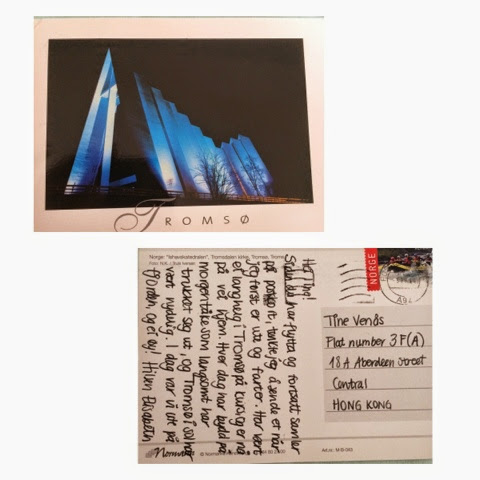 TROMSØ
Norge: "Ishavskatedralen", Tromsdalen kirke, Tromsø, Troms
Foto:
Hei Tina!
Siden du har flytta og fortsatt samler
på postkort, tenkte jeg å sende et når
jeg først er ute og farter. Har vært
ei langhelg i Tromsø på kurs og er nå
på vei hjem. Hver dag har budd på
morgentåke som langsomt har
trukket seg ut, og Tromsø i sol har
vært nydelig. I dag var vi ute på
fjorden, og ei øy! Hilsen Elisabeth
NORGE
Tine Vends
Flat number 3F(A)
18A Aberdeen Street
Central
HONG KONG
Normann